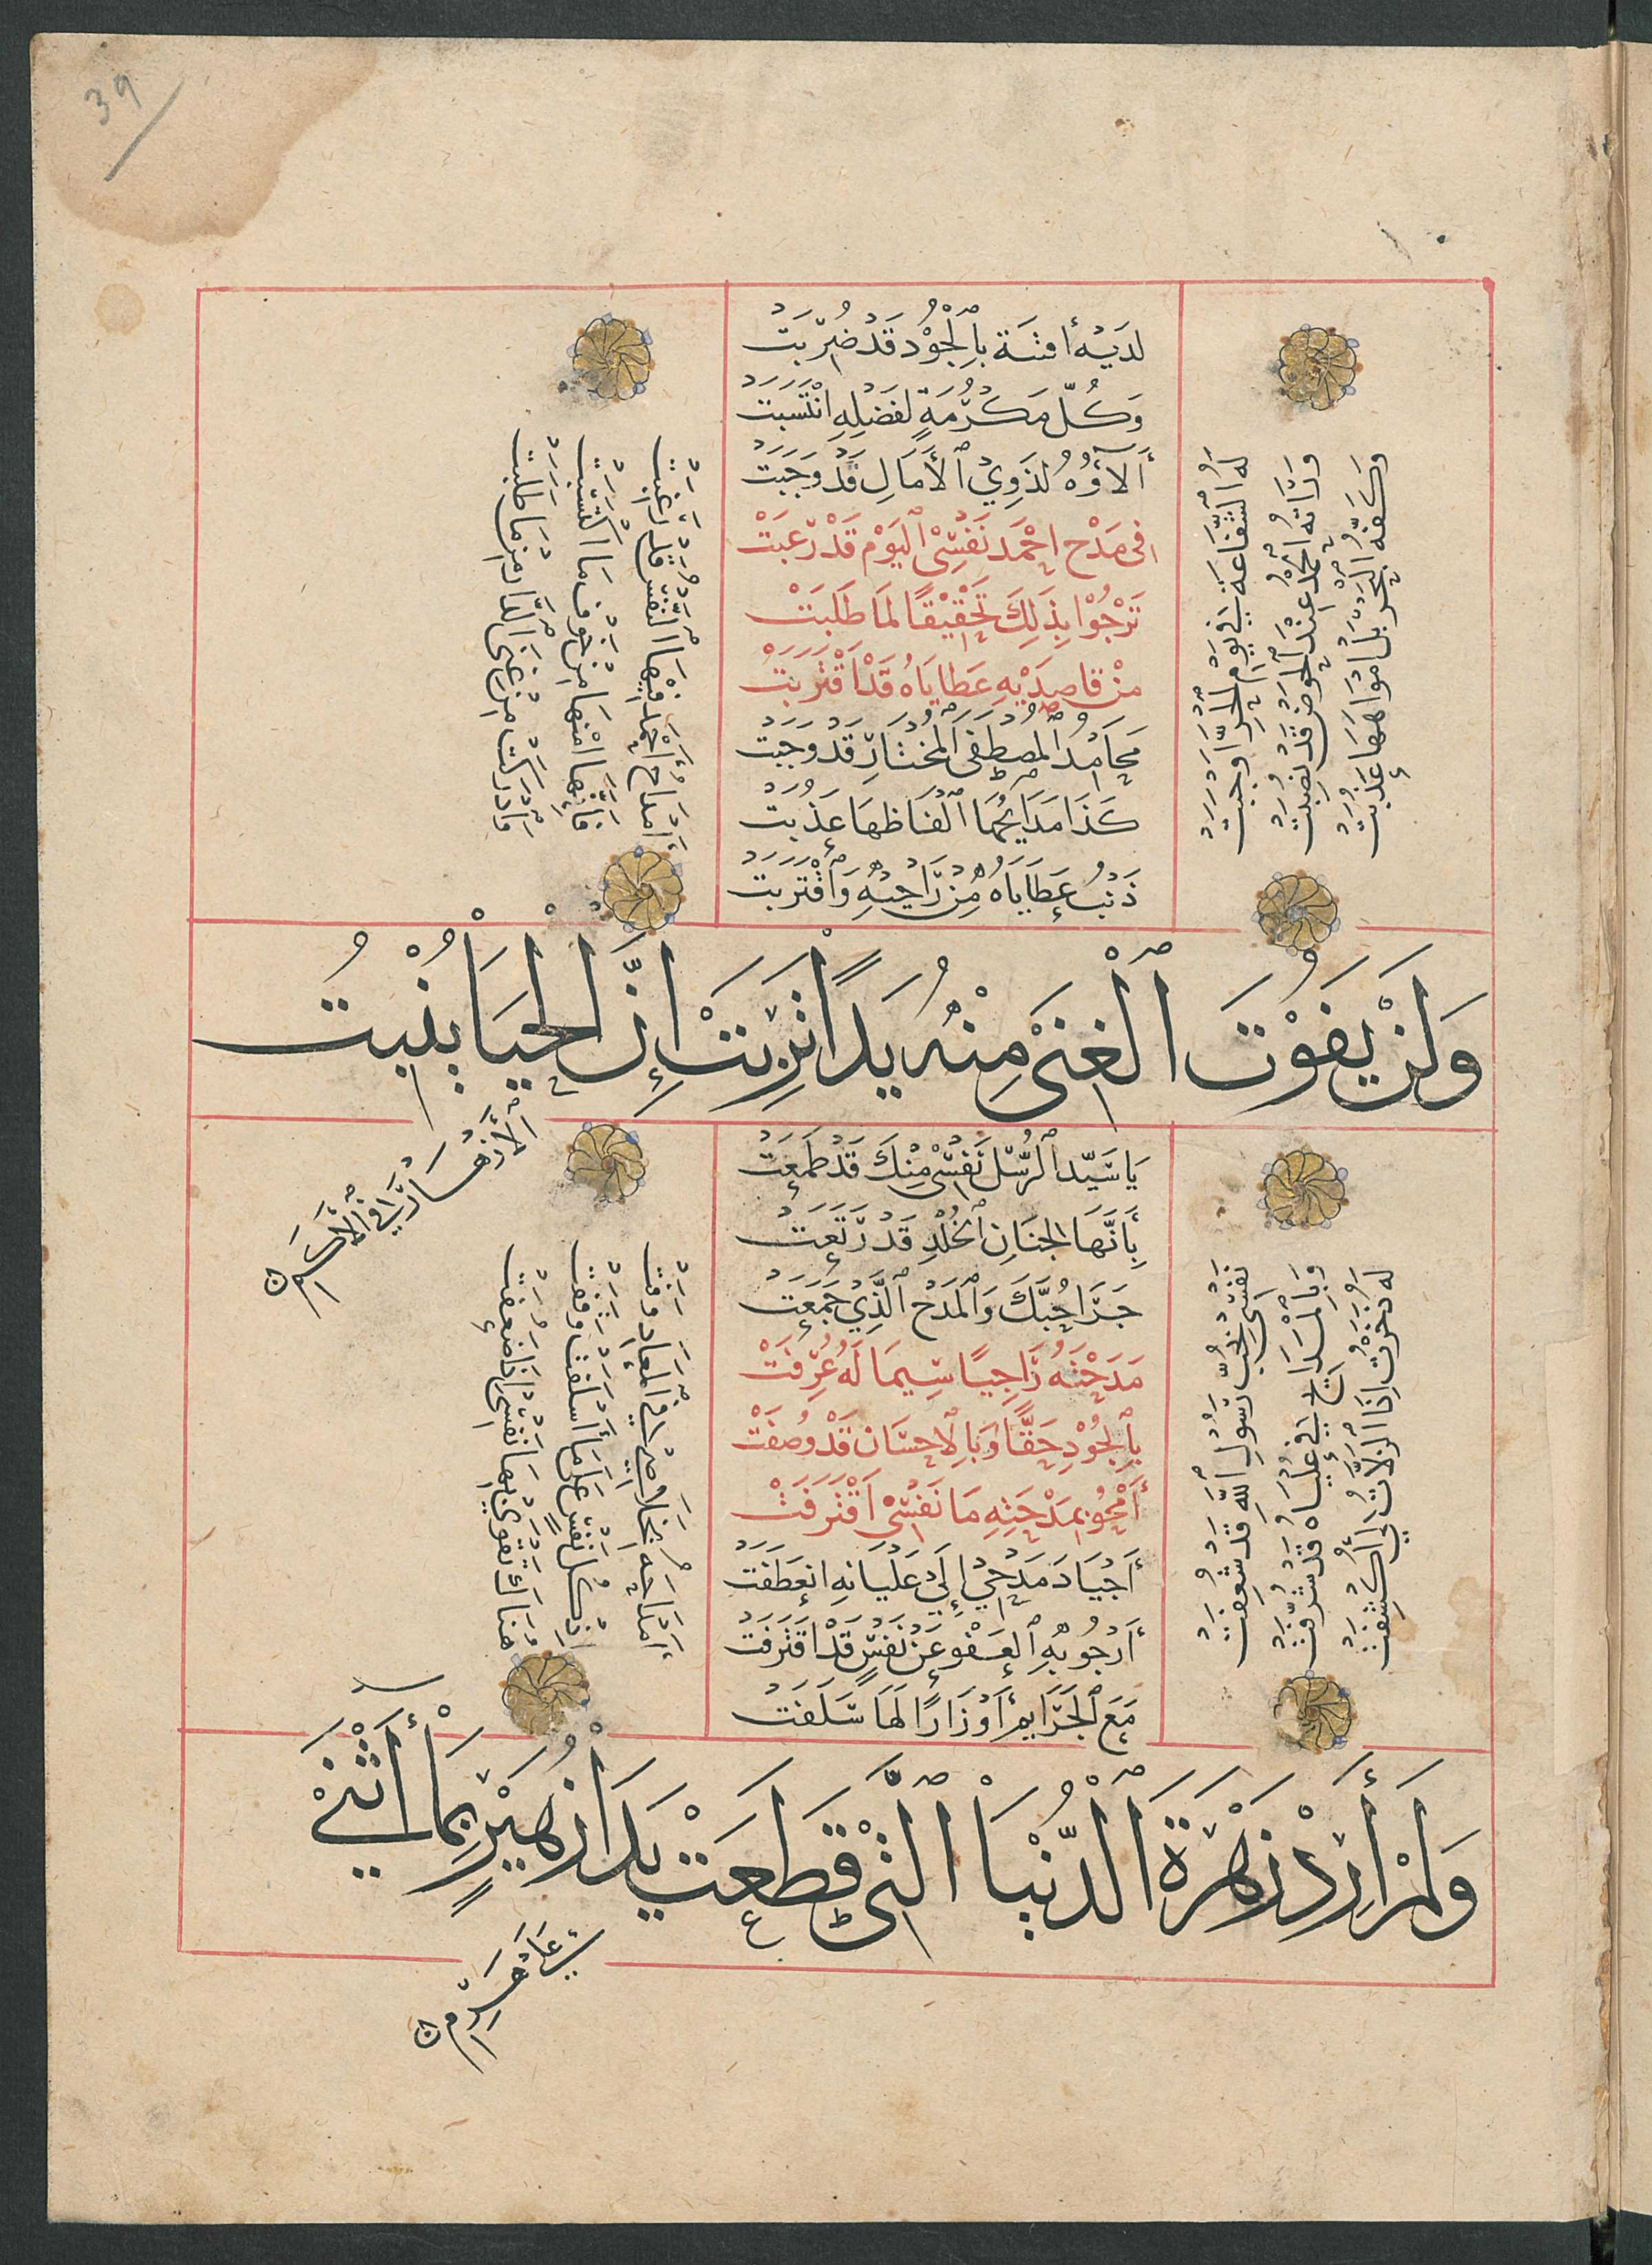 39
لديه أفنية بالجود قد ضربت
وكل مكرمة لفضله انتسبت
ألآؤه لذوي الأمال قد وجبت
في مدح احمد نفسي اليوم قد رغبت
ترجوا بذلك تحقيقا لما طلبت
من قاصديه عطاياه قد اقتربت
محامد المصطفى المختار قد وجبت
كذا مدايحها الفاظها عذبت
عطاياه من راجيه واقتربت
له الشفاعة في يوم الجزا وجبت
وراته الحمد عند الحوض قد نصبت
وكفه البحر بل امواهها عذبت
امداح احمد فيها النفس قد رغبت
فانها امنها من خوف ما اكتسبت
وادركت من غنى الدارين ما طلبت
ولن يفوت الغنى منه يدا تربت إن الحيا ينبت
الأزهار في الأكم
يا سيد الرسل نفسي منك قد طمعت
بأنها لجنان الخلد قد رتعت
جزا حبك والمدح الذي جمعت
مدحته راجيا سيما له عرفت
بالجود حقا وبالاحسان قد وصفت
أمحو بمدحته ما نفسي اقترفت
أجياد مدحي إلى عليائه انعطفت
أرجو به العفو عن نفس قد اقترفت
مع الجرايم أوزارا لها سلفت
نفسي بحب رسول الله قد شعفت
وبالمدايح في علياه قد شرفت
له ذخرت اذا الزلات لي كشفت
امداحه بخلاصي في المعاد وفت
اذ كل نفس على ما أسلفت وقفت
هناك تقوى بها نفسي اذا ضعفت
ولم أرد زهرة الدنيا التي قطعت يدا زهير بما أثنى
على هرم